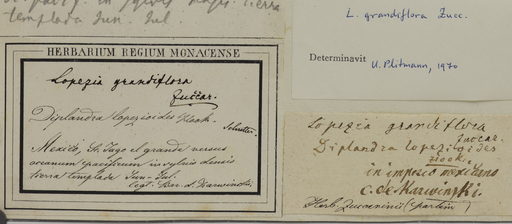 templada Jun. Jul.
HERBARIUM REGIUM MONACENSE
Lopezia grandiflora
Zuccar.
Diplandra lopezioides Hook.
Mexico, St. Jago el grande versus
oceanum pacificum in sylvis densis
tierra templada Jun-Jul.
Legt. Bar. d. Karwinski.
L. grandiflora Zucc.
Determinavit U. Plitmann, 1970
Lopezia grandiflora
Zuccar.
Diplandra lopezioides
Hook.
in imperio mexicano
C. de Karwinski.
Herb. Zuccarinii (partim)